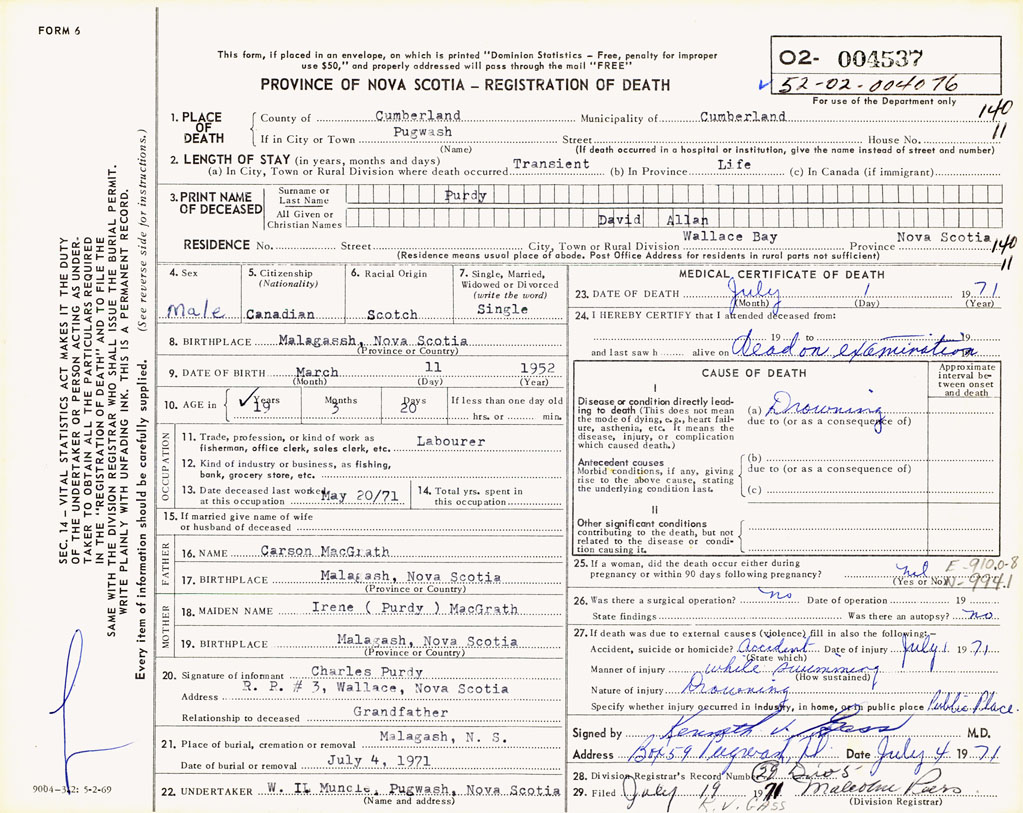 FORM 6
This form, if placed in an envelope, on which is printed "Dominion Statistics – Free, penalty for improper
use $50," and properly addressed will pass through the mail "FREE"
PROVINCE OF NOVA SCOTIA – REGISTRATION OF DEATH
02- 004537
52-02-004076
For use of the Department only
140
11
1. PLACE OF DEATH
County of Cumberland Municipality of Cumberland
If in City or Town Pugwash Street House No.
(Name) (If death occurred in a hospital or institution, give the name instead of street and number)
2. LENGTH OF STAY (in years, months and days)
(a) In City, Town or Rural Division where death occurred Transient (b) In Province Life (c) In Canada (if immigrant)
3. PRINT NAME OF DECEASED
Surname or Last Name Purdy
All Given or Christian Names David Allan
RESIDENCE No. Street City, Town or Rural Division Wallace Bay Province Nova Scotia
140
11
(Residence means usual place of abode. Post Office Address for residents in rural parts not sufficient)
4. Sex
Male
5. Citizenship
(Nationality)
Canadian
6. Racial Origin
Scotch
7. Single, Married,
Widowed or Divorced
(write the word)
Single
8. BIRTHPLACE Malagassh, Nova Scotia
(Province or Country)
9. DATE OF BIRTH March 11 1952
(Month) (Day) (Year)
10. AGE in Years 19 Months 3 Days 20 If less than one day old
hrs. or min.
OCCUPATION
11. Trade, profession, or kind of work as
fisherman, office clerk, sales clerk, etc. Labourer
12. Kind of industry or business, as fishing,
bank, grocery store, etc.
13. Date deceased last worked
at this occupation May 20/71
14. Total yrs. spent in
this occupation
15. If married give name of wife
or husband of deceased
FATHER
16. NAME Carson MacGrath
17. BIRTHPLACE Malagash, Nova Scotia
(Province or Country)
MOTHER
18. MAIDEN NAME Irene ( Purdy ) MacGrath
19. BIRTHPLACE Malagash, Nova Scotia
(Province or Country)
20. Signature of informant Charles Purdy
Address R. R. # 3, Wallace, Nova Scotia
Relationship to deceased Grandfather
21. Place of burial, cremation or removal Malagash, N. S.
Date of burial or removal July 4, 1971
22. UNDERTAKER W. II Muncle, Pugwash, Nova Scotia
(Name and address)
MEDICAL CERTIFICATE OF DEATH
23. DATE OF DEATH July 1 1971
(Month) (Day) (Year)
24. I HEREBY CERTIFY that I attended deceased from:
19 to 19
and last saw h alive on Dead on examination
CAUSE OF DEATH
Approximate
interval be-
tween onset
and death
I
Disease or condition directly lead-
ing to death (This does not mean
the mode of dying, e.g., heart fail-
ure, asthenia, etc. It means the
disease, injury, or complication
which caused death.)
(a) Drowning
due to (or as a consequence of)
Antecedent causes
Morbid conditions, if any, giving
rise to the above cause, stating
the underlying condition last.
(b)
due to (or as a consequence of)
(c)
II
Other significant conditions
contributing to the death, but not
related to the disease or condi-
tion causing it.
25. If a woman, did the death occur either during
pregnancy or within 90 days following pregnancy?
(Yes or No)
E-910.0-8
N-994.1
26. Was there a surgical operation? no Date of operation 19
State findings Was there an autopsy? no
27. If death was due to external causes (violence) fill in also the following:–
Accident, suicide or homicide? Accident Date of injury July 1 1971
(State which)
Manner of injury while swimming
(How sustained)
Nature of injury Drowning
Specify whether injury occurred in industry, in home, or in public place Public Place.
Signed by Kenneth V. Gass M.D.
Address Box 59 Pugwash Date July 4 1971
28. Division Registrar's Record Number 29 Div 5
29. Filed July 19 1971 Malcolm Peers
(Division Registrar)
K. V. GASS
SEC. 14 – VITAL STATISTICS ACT MAKES IT THE DUTY
OF THE UNDERTAKER OR PERSON ACTING AS UNDER-
TAKER TO OBTAIN ALL THE PARTICULARS REQUIRED
IN THE "REGISTRATION OF DEATH" AND TO FILE THE
SAME WITH THE DIVISION REGISTRAR WHO SHALL ISSUE THE BURIAL PERMIT.
WRITE PLAINLY WITH UNFADING INK. THIS IS A PERMANENT RECORD.
Every item of information should be carefully supplied. (See reverse side for instructions.)
9004-3/2: 5-2-69